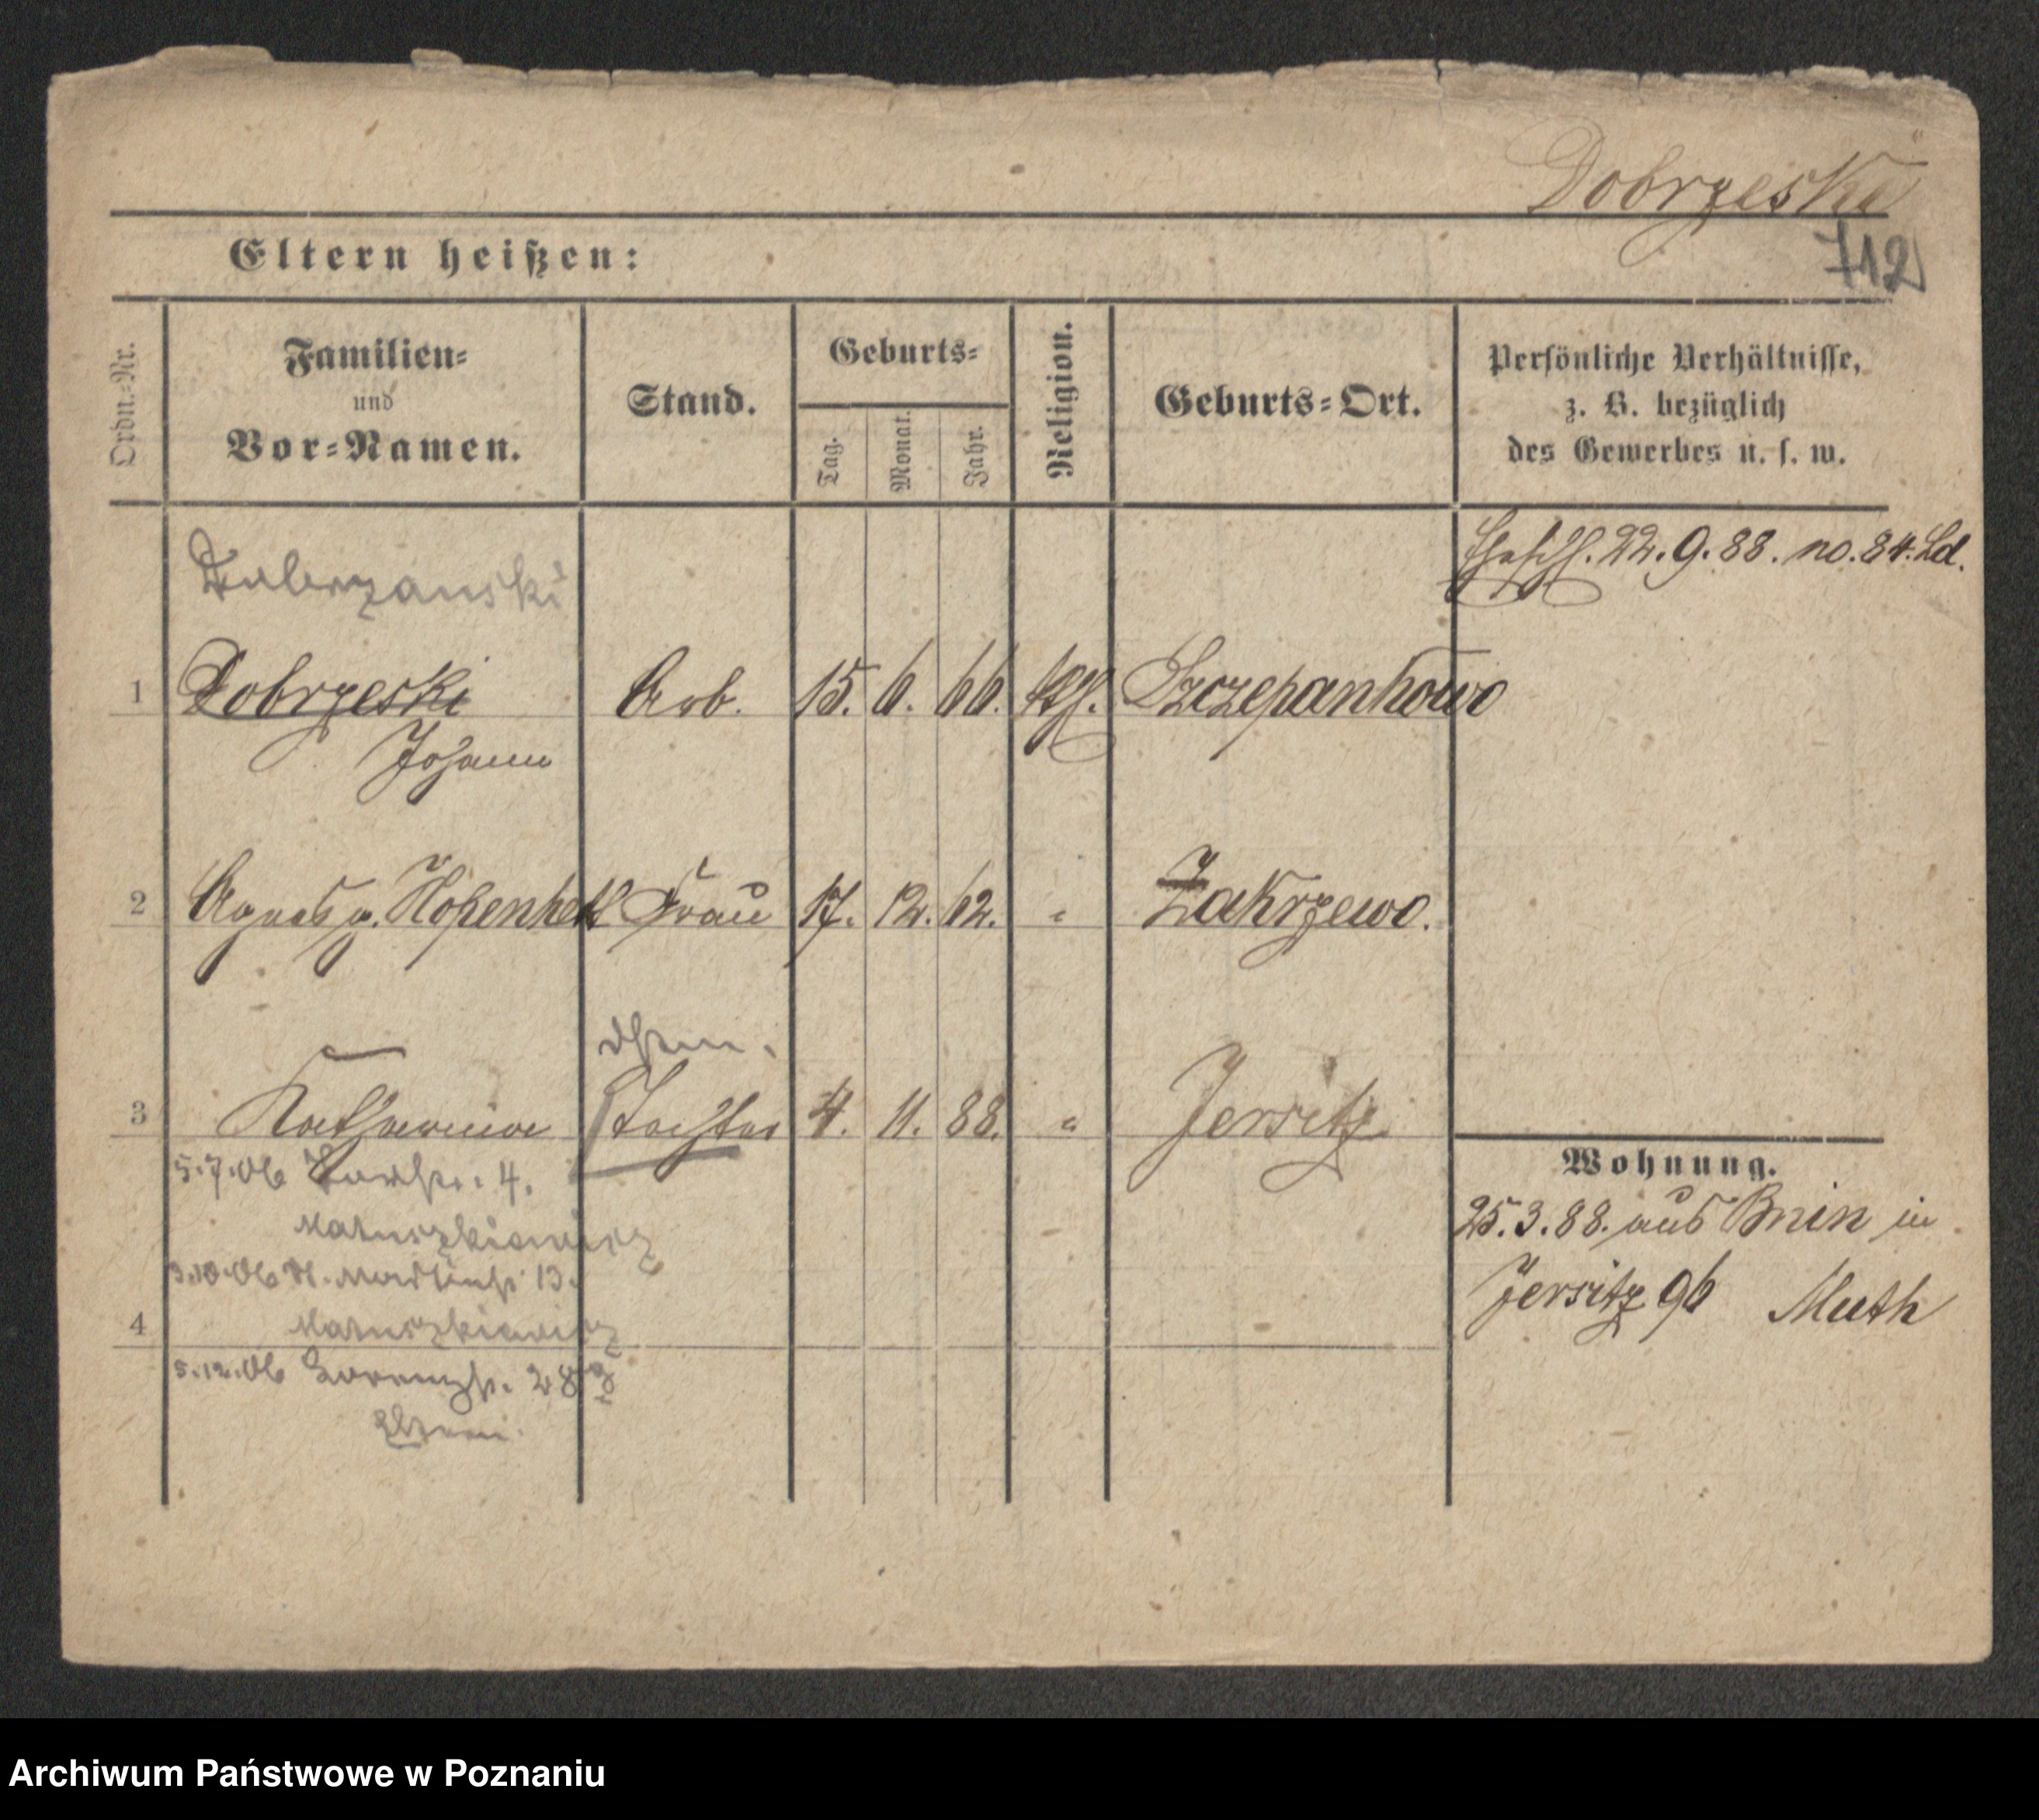 Dobrzeski
712
Eltern heißen:
Ordn.-Nr.
Familien-
und
Vor-Namen.
Stand.
Geburts-
Tag.
Monat.
Jahr.
Religion.
Geburts-Ort.
Persönliche Verhältnisse,
z. B. bezüglich
des Gewerbes u. s. w.
22. 9. 88. no. 84. Ld.
Dobrzanski
1 Dobrzeski Arb. 15. 6. 66. kth. Szczepankowo
Johann
2 Agnes g. Frau 17. 12. 62. " Zakrzewo.
3 Katharina Tochter 4. 11. 88. " Jersitz
5.7.06 4.
Matuszkiewicz
3.10.06 13.
4 Matuszkiewicz
5.12.06 28
Eltern.
Wohnung.
25. 3. 88. aus Bnin in
Jersitz 96 Muth
Archiwum Państwowe w Poznaniu